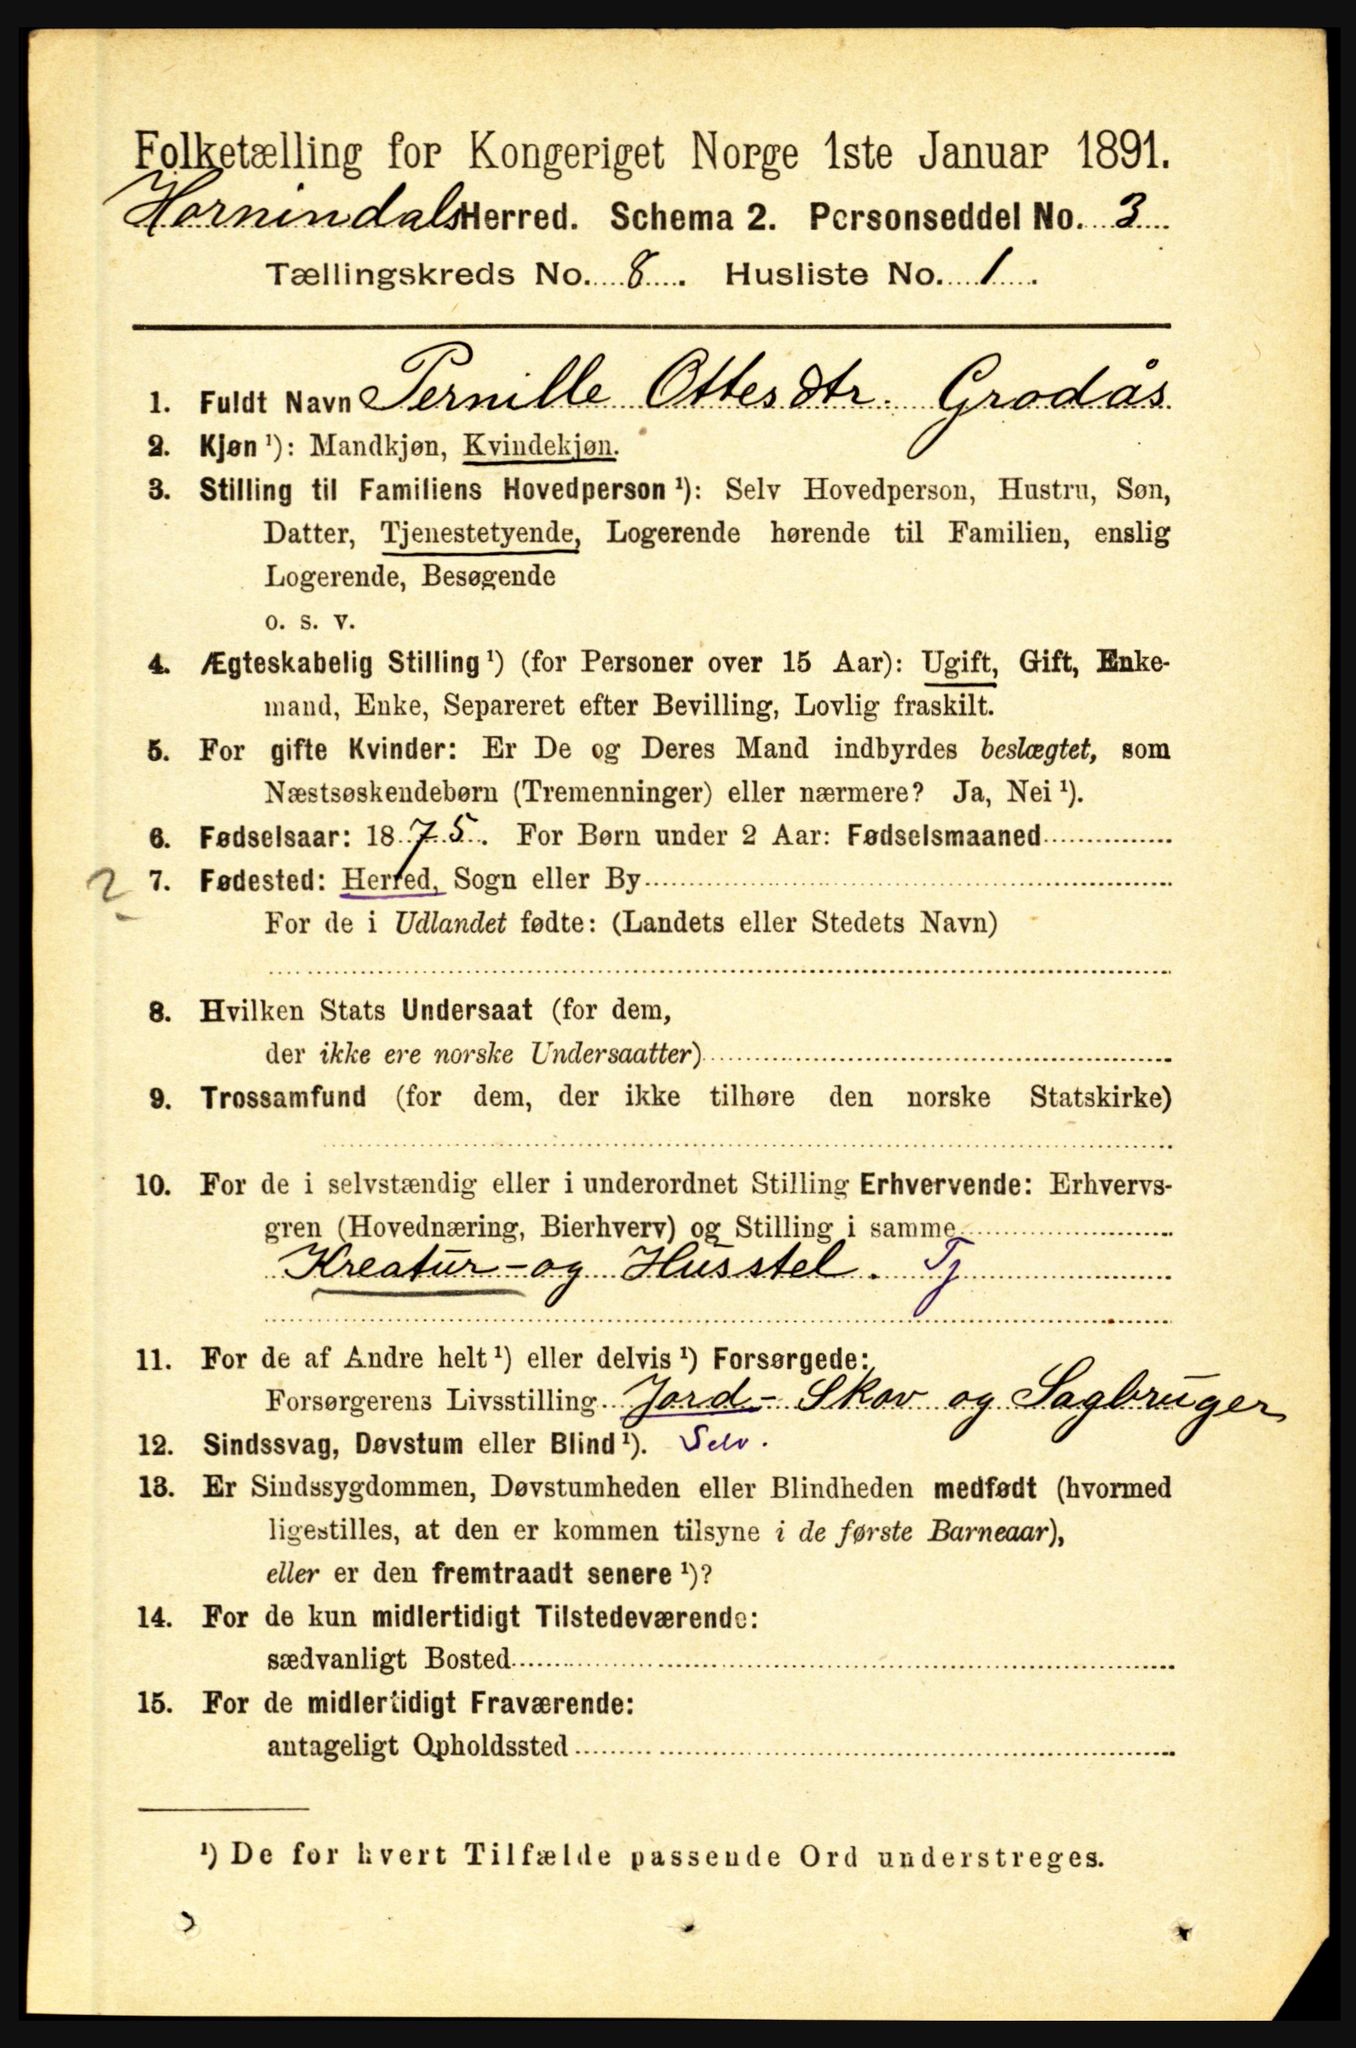 Folketælling for Kongeriget Norge 1ste Januar 1891.
Hornindals Herred. Schema 2. Personseddel No. 3
Tællingskreds No. 8. Husliste No. 1.
1. Fuldt Navn Pernille Ottesdtr. Grodås
2. Kjøn ¹): Mandkjøn, Kvindekjøn.
3. Stilling til Familiens Hovedperson ¹): Selv Hovedperson, Hustru, Søn,
Datter, Tjenestetyende, Logerende hørende til Familien, enslig
Logerende, Besøgende
o. s. v.
4. Ægteskabelig Stilling ¹) (for Personer over 15 Aar): Ugift, Gift, Enke-
mand, Enke, Separeret efter Bevilling, Lovlig fraskilt.
5. For gifte Kvinder: Er De og Deres Mand indbyrdes beslægtet, som
Næstsøskendebørn (Tremenninger) eller nærmere? Ja, Nei ¹).
6. Fødselsaar: 1875. For Børn under 2 Aar: Fødselsmaaned
2 7. Fødested: Herred, Sogn eller By
For de i Udlandet fødte: (Landets eller Stedets Navn)
8. Hvilken Stats Undersaat (for dem,
der ikke ere norske Undersaatter)
9. Trossamfund (for dem, der ikke tilhøre den norske Statskirke)
10. For de i selvstændig eller i underordnet Stilling Erhvervende: Erhvervs-
gren (Hovednæring, Bierhverv) og Stilling i samme
Kreatur- og Husstel. Tj
11. For de af Andre helt ¹) eller delvis ¹) Forsørgede:
Forsørgerens Livsstilling Jord- Skov og Sagbruger
12. Sindssvag, Døvstum eller Blind ¹). Selv.
13. Er Sindssygdommen, Døvstumheden eller Blindheden medfødt (hvormed
ligestilles, at den er kommen tilsyne i de første Barneaar),
eller er den fremtraadt senere ¹)?
14. For de kun midlertidigt Tilstedeværende:
sædvanligt Bosted
15. For de midlertidigt Fraværende:
antageligt Opholdssted
¹) De for hvert Tilfælde passende Ord understreges.